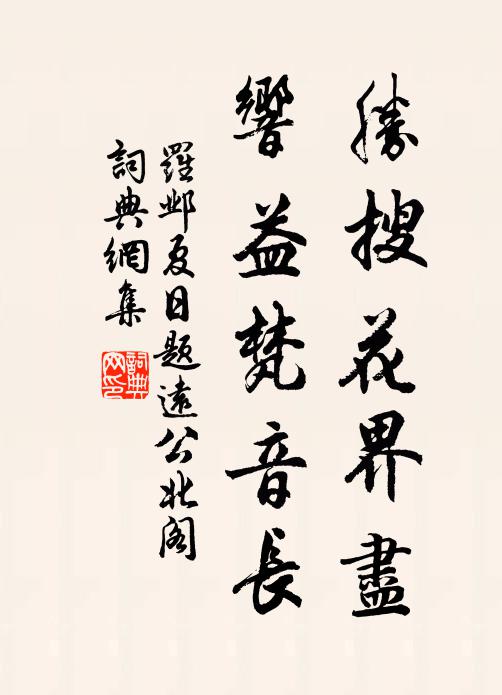 勝搜花界盡
響益梵音長
羅鄴夏日題遠公北閣
詞典網集
詞典网印